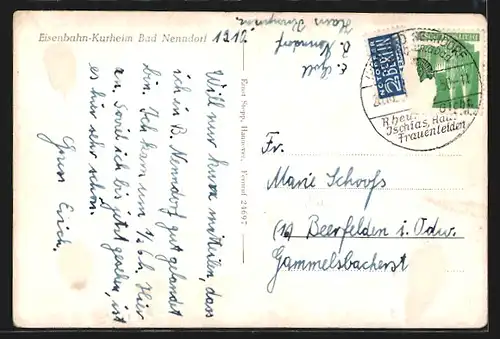 Eisenbahn-Kurheim Bad Nenndorf
13.10.
Will nur kurz mitteilen, dass
ich in B. Nenndorf gut gelandet
bin. Ich kam um 1/2 6 h. Hier
an. Soviel ich bis jetzt gesehen, ist
es hier sehr schön.
Gruss Erich.
Ernst Stepp, Hannover, Fernruf 24697
NOTOPFER
2 BERLIN
Rheuma
Ischias, Haut-
Frauenleiden
Fr.
Marie Schoofs
(16) Beerfelden i. Odw.
Gammelsbacherst